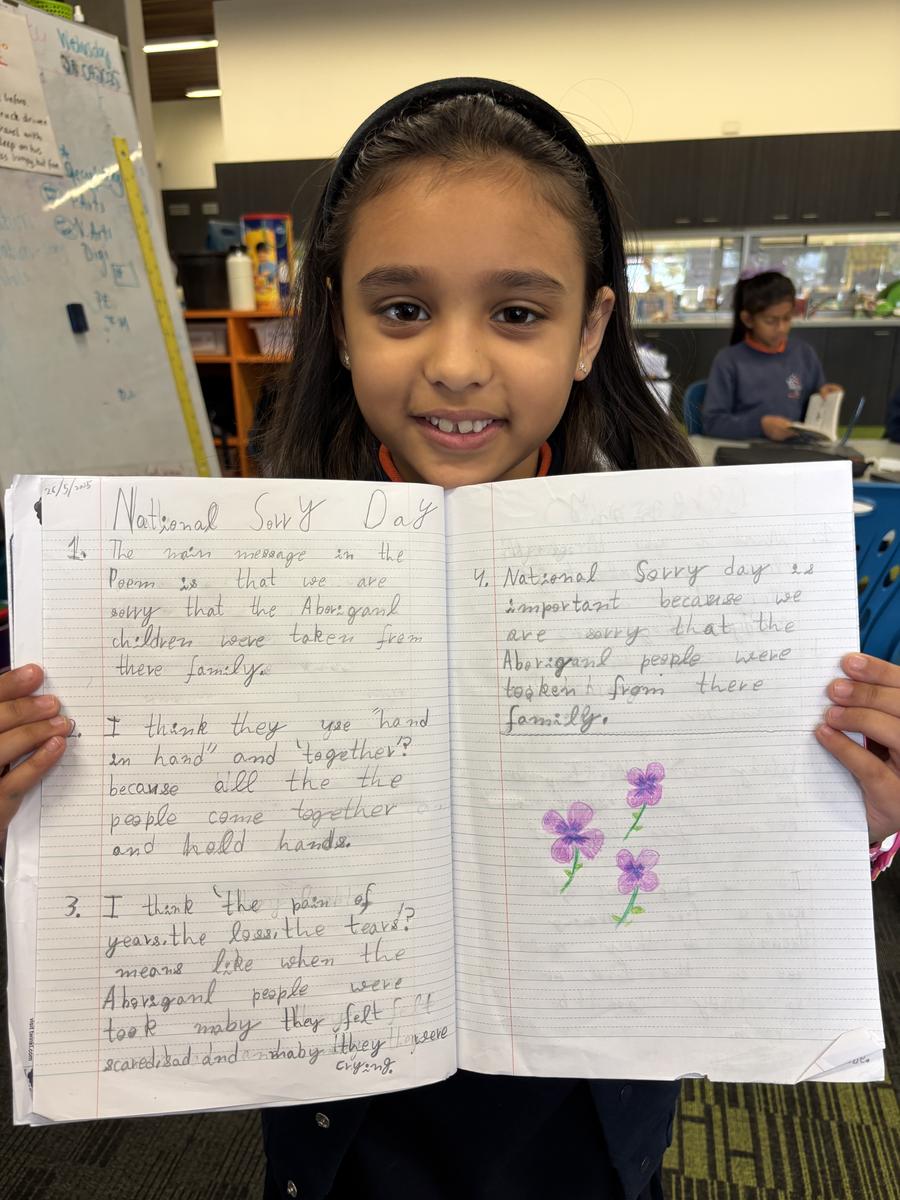 26/5/2025
National Sorry Day
1. The main message in the
Poem is that we are
sorry that the Aboriganl
children were taken from
there family.
2. I think they use "hand
in hand" and 'together'?
because all the the
people come together
and hold hands.
3. I think 'the pain of
years, the loss, the tears'?
means like when the
Aboriganl people were
took maby they felt
scared, sad and maby they were
crying.
4. National Sorry day is
important because we
are sorry that the
Aboriganl people were
tooken from there
family.
visit twinkl.com
Wednesday
before.
truck driver
travel with
sleep on his
hungry, but fine